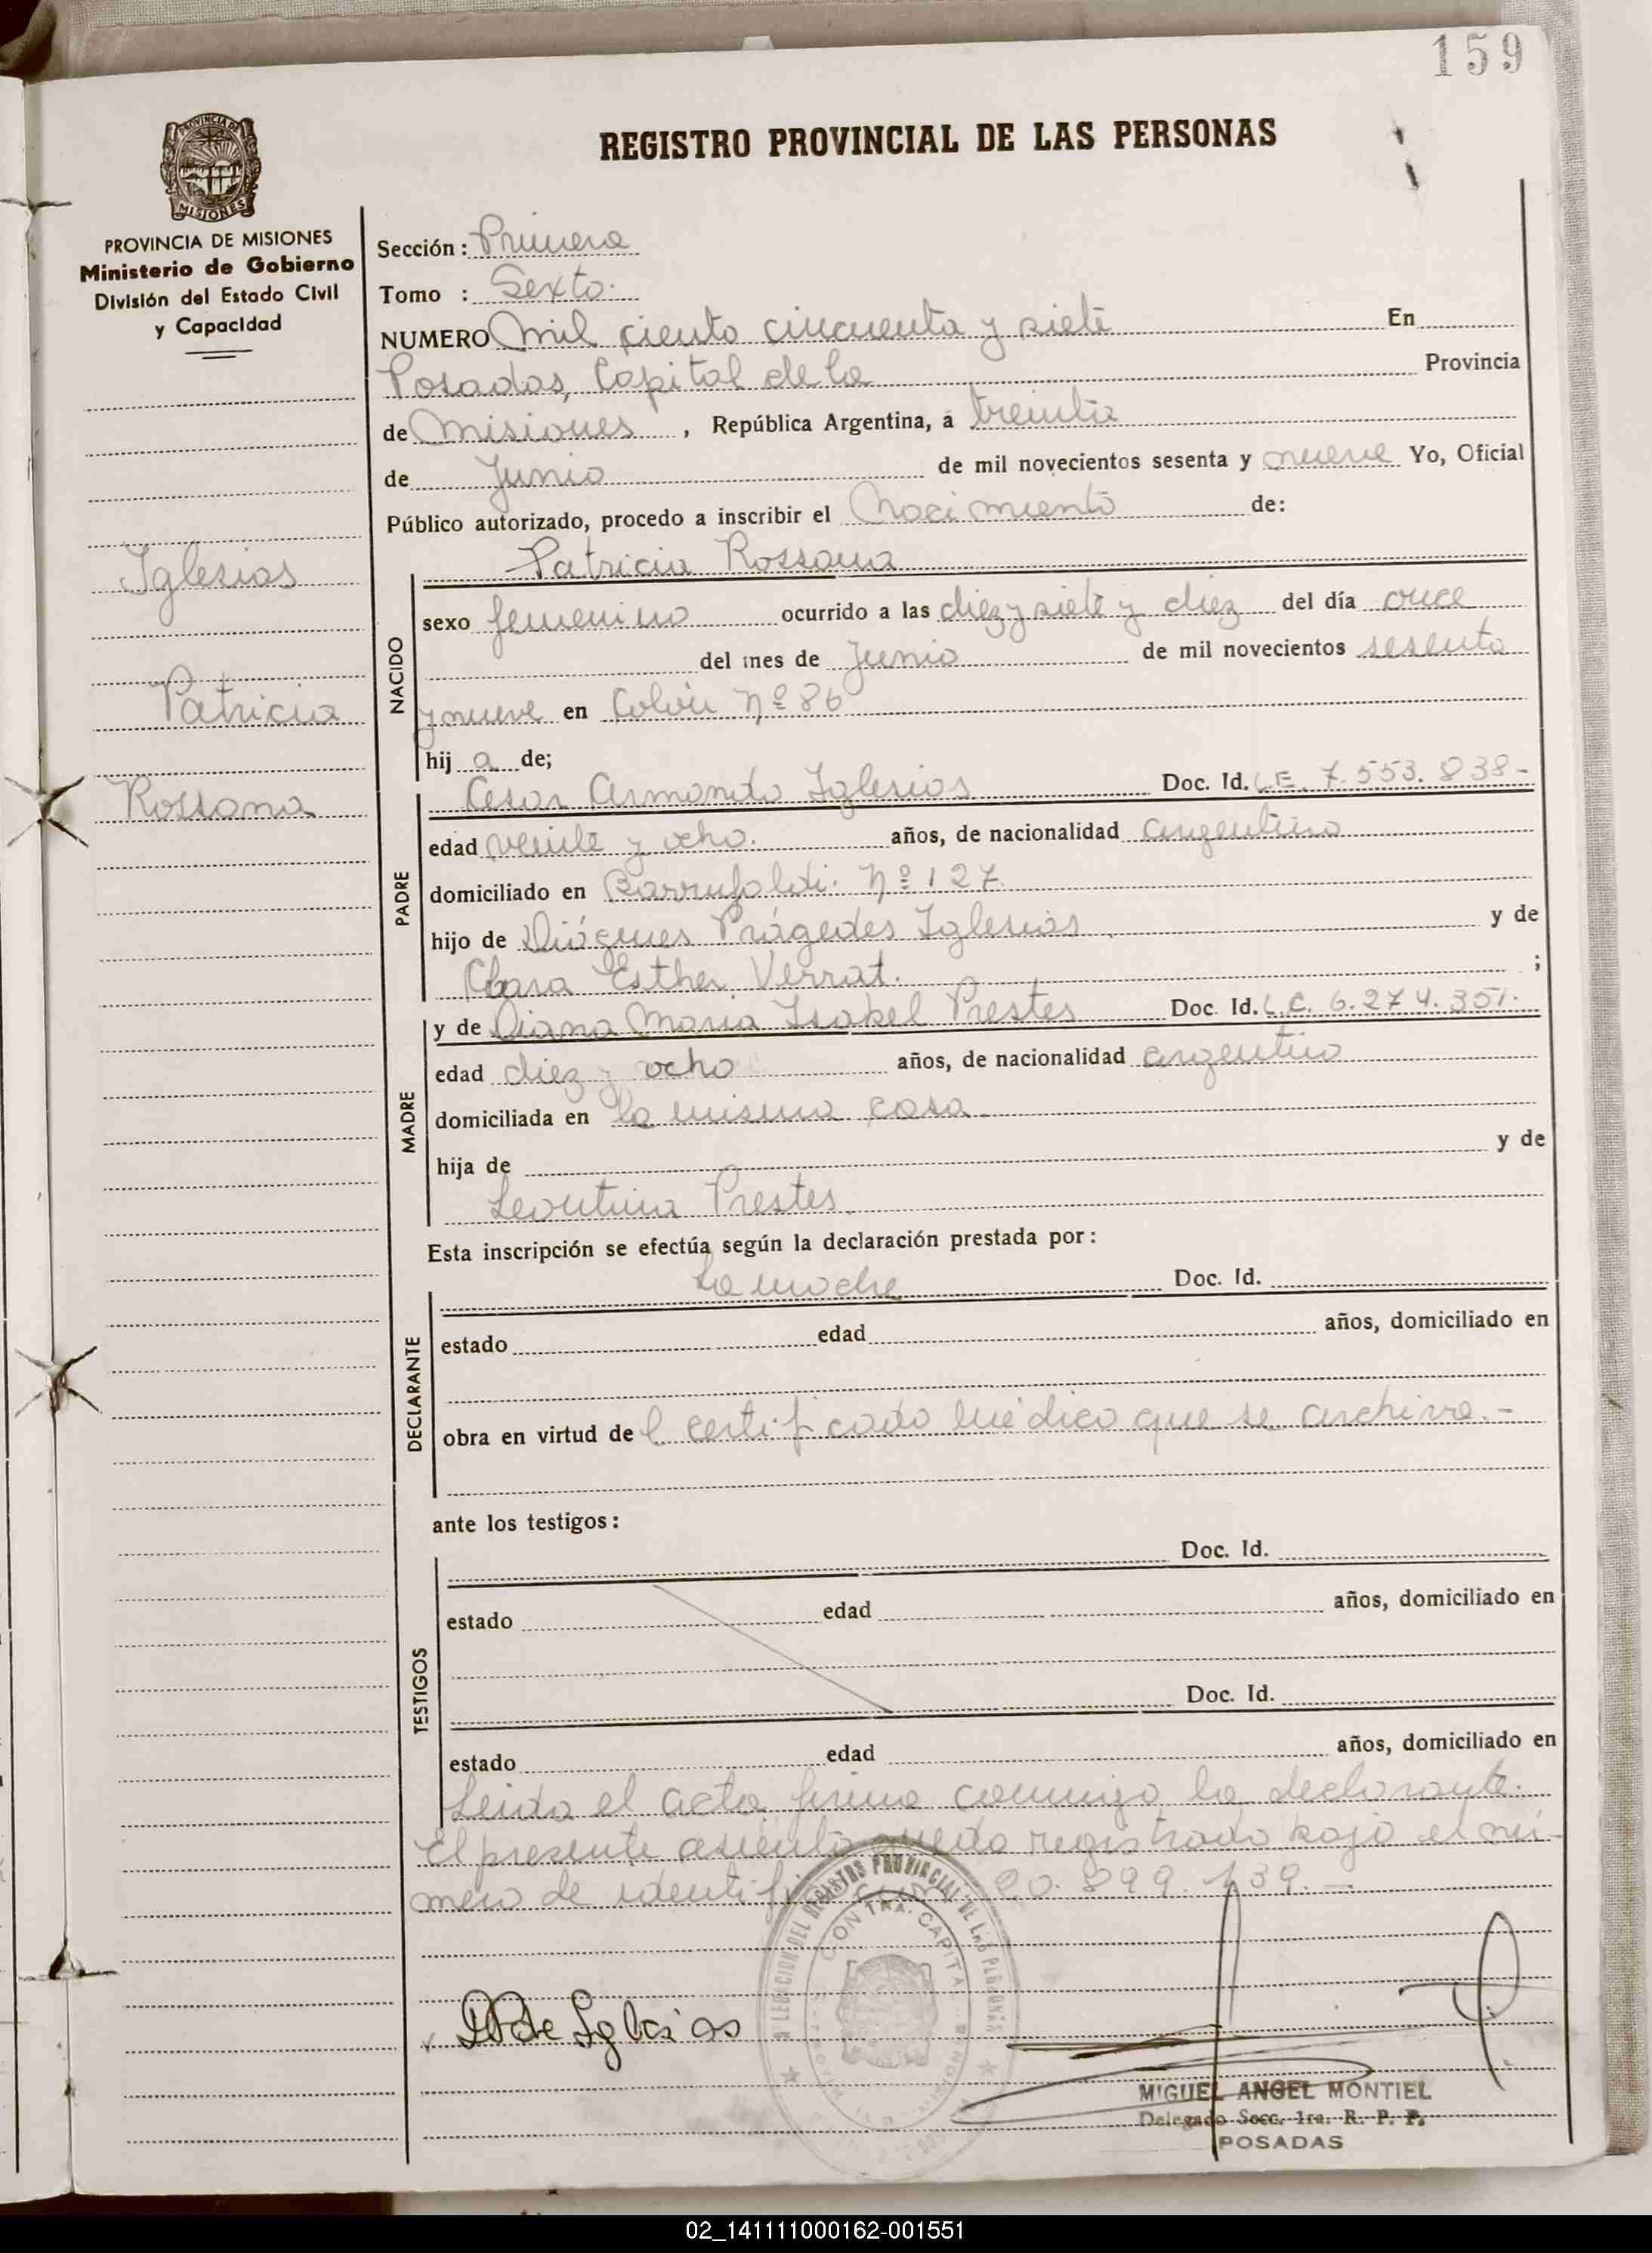 159
REGISTRO PROVINCIAL DE LAS PERSONAS
PROVINCIA DE MISIONES
Ministerio de Gobierno
División del Estado Civil
y Capacidad
Iglesias
Patricia
Rossana
Sección: Primera
Tomo : Sexto.
NUMERO Mil ciento cincuenta y siete En
Posadas, Capital de la Provincia
de Misiones, República Argentina, a treinta
de Junio de mil novecientos sesenta y nueve Yo, Oficial
Público autorizado, procedo a inscribir el Nacimiento de:
NACIDO
Patricia Rossana
sexo femenino ocurrido a las diez y siete y diez del día once
del mes de Junio de mil novecientos sesenta
y nueve en Colón Nº 86
hij a de;
PADRE
Cesar Armando Iglesias Doc. Id. L.E. 7.553.838-
edad veinte y ocho. años, de nacionalidad argentino
domiciliado en Barrufaldi. Nº 127.
hijo de Diógenes Prágedes Iglesias y de
Clara Esther Verrat. ;
MADRE
y de Diana Maria Isabel Prestes Doc. Id. L.C. 6.274.351.
edad diez y ocho años, de nacionalidad argentina
domiciliada en la misma casa.
hija de y de
Leontina Prestes.
Esta inscripción se efectúa según la declaración prestada por:
DECLARANTE
La madre Doc. Id.
estado edad años, domiciliado en
obra en virtud de l certificado médico que se archiva.-
ante los testigos:
TESTIGOS
Doc. Id.
estado edad años, domiciliado en
Doc. Id.
estado edad años, domiciliado en
Leida el acta firma conmigo la declarante.
El presente asiento queda registrado bajo el nú-
mero de identificación 20.899.139.-
DP de Iglesias
MIGUEL ANGEL MONTIEL
Delegado Secc. 1ra. R. P. P.
POSADAS
02_141111000162-001551